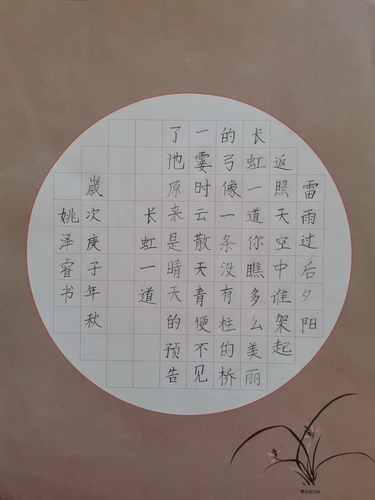 雷雨过后夕阳
返照天空中谁架起
长虹一道你瞧多么美丽
的弓像一条没有柱的桥
一霎时云散天青便不见
了他原来是晴天的预告
长虹一道
嵗次庚子年秋
姚泽睿书